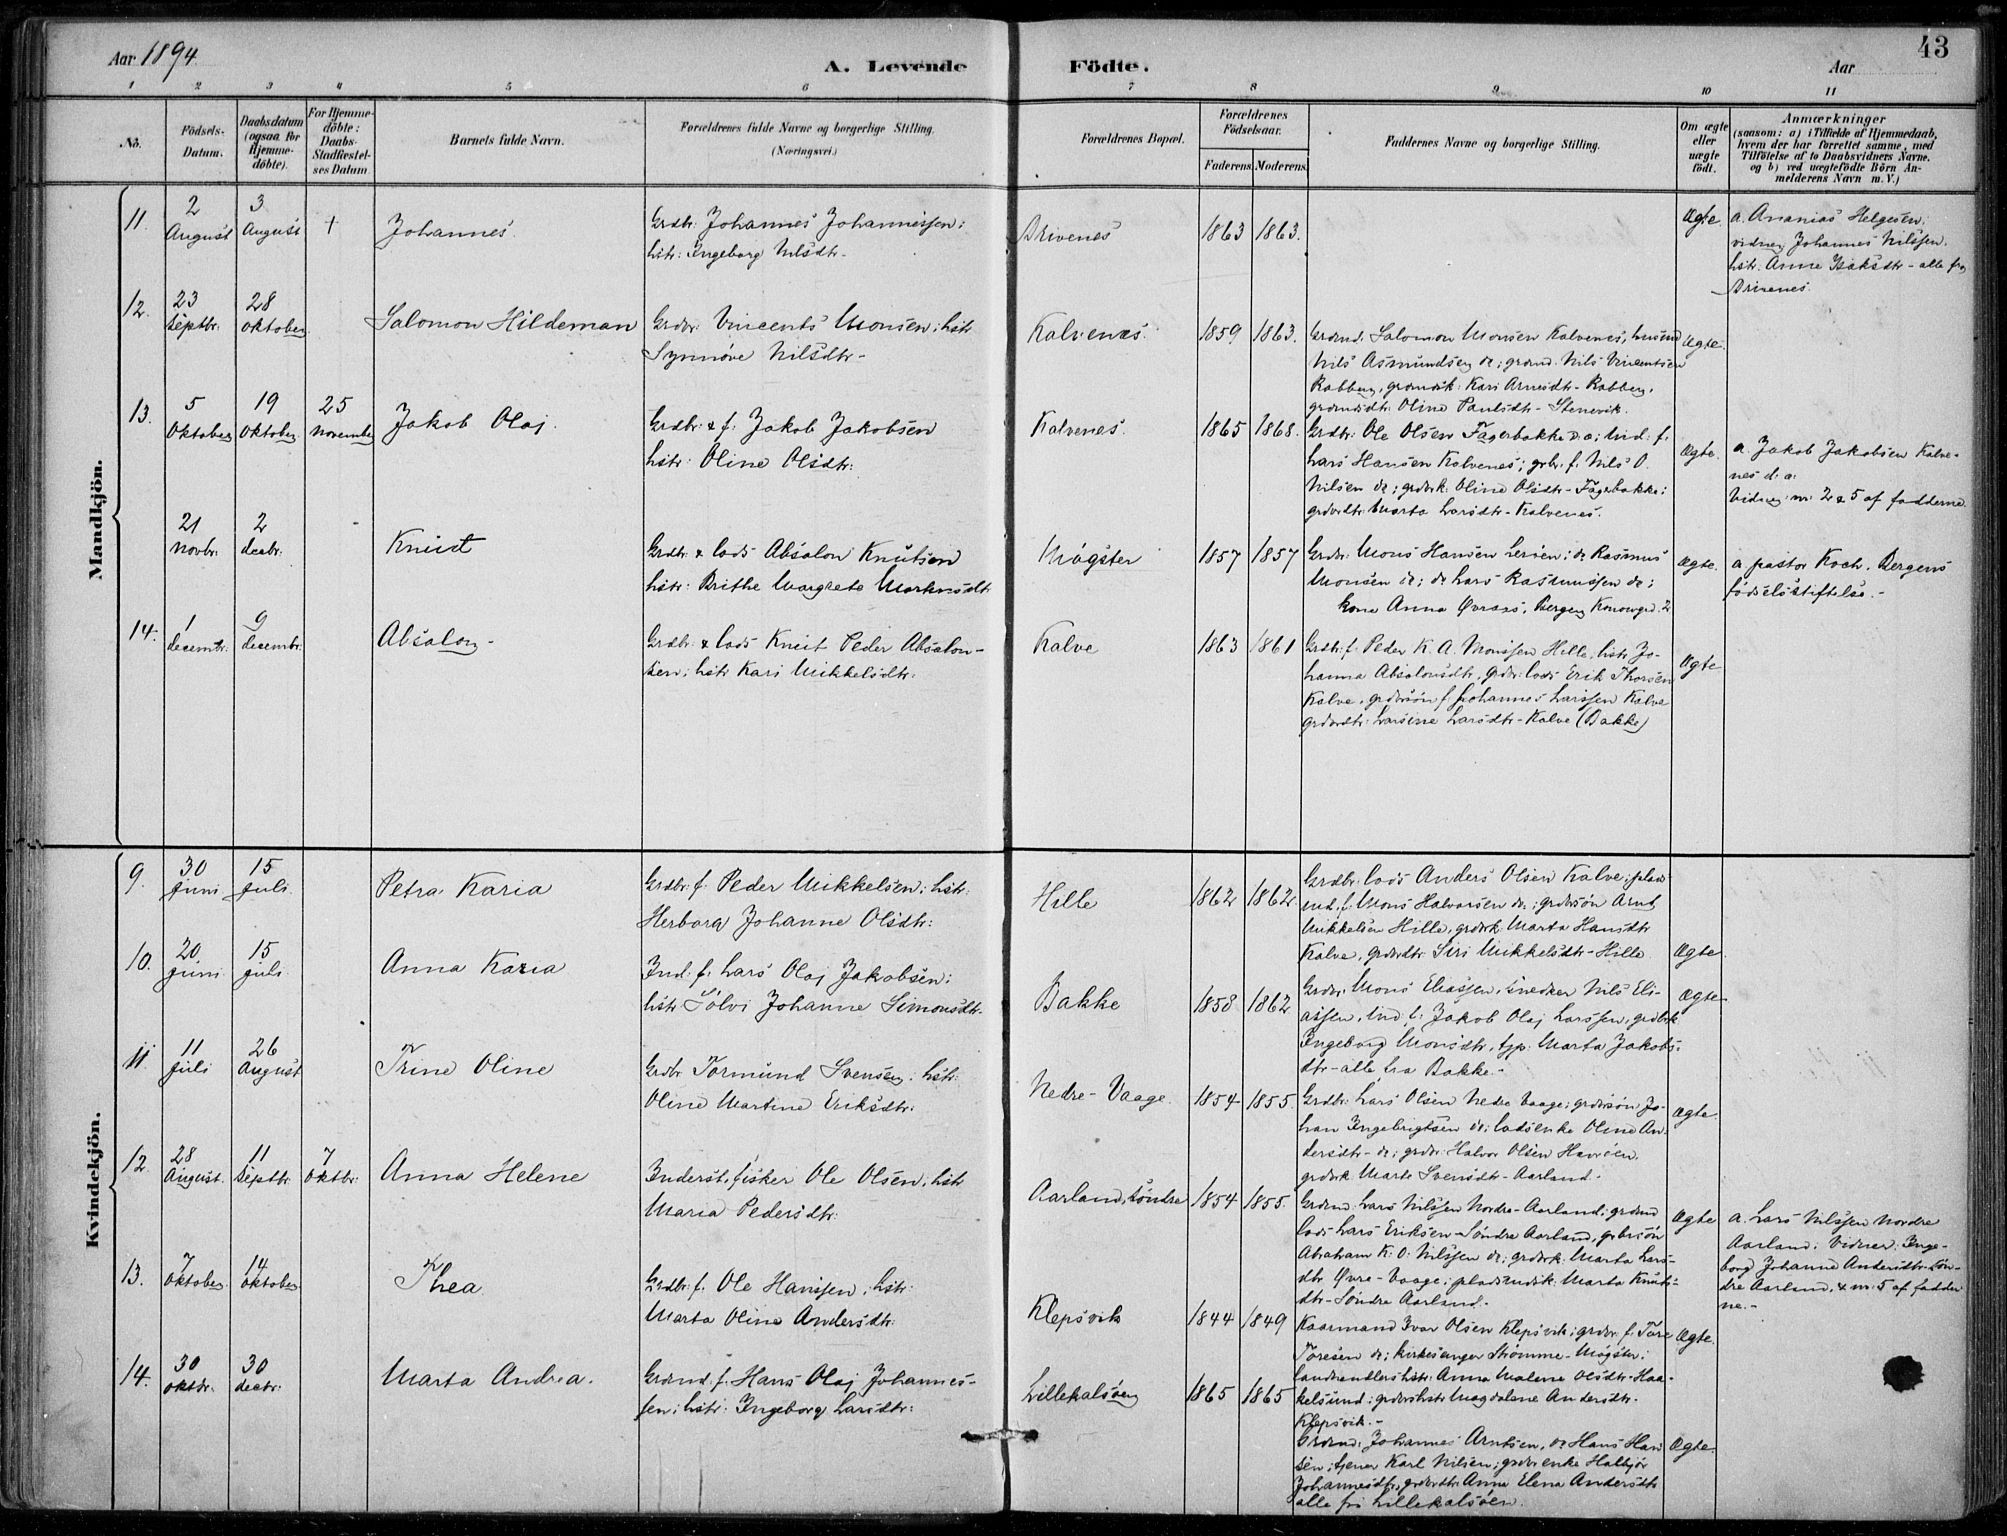 Aar 1894
A. Levende
Födte.
Aar
43
1 2 3 4 5 6 7 8 9 10 11
No.
Födsels-
Datum.
Daabsdatum
(ogsaa for
Hjemme-
döbte).
For Hjemme-
döbte:
Daabs-
Stadfæstel-
ses Datum
Barnets fulde Navn.
Forældrenes fulde Navne og borgerlige Stilling.
(Næringsvei.)
Forældrenes Bopæl.
Forældrenes
Födselsaar.
Faderens Moderens
Faddernes Navne og borgerlige Stilling.
Om ægte
eller
uægte
födt.
Anmærkninger
(saasom: a) i Tilfælde af Hjemmedaab,
hvem der har forrettet samme, med
Tilföielse af to Daabsvidners Navne.
og b) ved uægtefödte Börn An-
melderens Navn m. V.)
Mandkjön.
11. 2 August 3 August + Johannes
Grdbr: Johannes Johannessen;
hstr: Ingeborg Nilsdtr-
Drivenes 1863 1863. Ægte
a. Ananias Helgesen;
vidner Johannes Nilssen.
hstr: Anne Isaksdtr- alle fra
Drivenes
12. 23 Septbr. 28 oktober Salomon Hildeman
Grdbr: Vincents Monsen; hstr
Synnøve Nilsdtr-
Kalvenes 1859 1863.
Grdmd. Salomon Monsen Kalvenes, husmd
Nils Asmundsen do; grdmd. Nils Vincentsen
Rabben, grdmdsk: Kari Arnesdtr- Rabben,
grdmdsdtr: Oline Paulsdtr- Stenevik.
Ægte.
13. 5 Oktober 19 Oktober 25 November Jakob Olaj.
Grdbr: & f. Jakob Jakobsen
hstr: Oline Olsdtr:
Kalvenes. 1865 1868.
Grdbr: Ole Olsen Fagerbakke
Lars Hansen Kalvenes; grbr. f. Nils O.
Nilsen do; grdbrk: Oline Olsdtr- Fagerbakke;
grdbrdtr Marta Larsdtr- Kalvenes.
Ægte.
a. Jakob Jakobsen Kalve-
nes d. æ:
Vidner: nr: 2 & 5 af fadderne.
21 Novbr: 2 decbr: Knud
Grdbr: & lods Absalon Knutsen
hstr: Brithe Margrete
Møgster 1857 1857
Grdbr: Mons Hansen do Rasmus
Monsen do; do Lars Rasmussen do;
kone Anna Bergen
Ægte.
a pastor Koch. Bergens
fødselsstiftelse.-
14. 1 decembr: 9 decembr: Absalon-
Grdbr: & lods Knut Peder Absalon-
sen; hstr Kari Mikkelsdtr:
Kalve 1863 1861
Grdbr: f: Peder K. A. Monssen Hille, hstr Jo-
hanna Absalonsdtr, grdbr: lods Erik Thorsen
Kalve, grdbrsøn f Johannes Larssen Kalve
grdbrdtr: Larsine Larsdtr- Kalve (Bakke)
Ægte
Kvindekjön.
9. 30 Juni 15 Juli. Petra Karia
Grdbr: f. Peder Mikkelsen; hstr:
Herborg Johanne Olsdtr:
Hille 1862 1862.
Grdbr: lods Anders Olsen Kalve;
f: Mons Halvorsen do; grdbrsøn Arnt
Mikkelsen Hille, grdbrk. Marta Hansdtr
Kalve, grdbrdtr: Siri Mikkelsdtr- Hille
Ægte
10. 20 Juni 15 Juli Anna Karia
Ind: f. Lars Olaj Jakobsen;
hstr Sølvi Johanne Simonsdtr-
Bakke 1858 1862
Grdbr: Mons Eliassen, snedker Nils Eli-
assen, Ind f: Jakob Olaj Larssen, grdbrk
Ingeborg Monsdtr, Marta Jakobs-
dtr- alle fra Bakke.-
Ægte
11. 11 Juli 26 August Trine Oline
Grdbr Tormund Svensen; hstr:
Oline Martine Eriksdtr:
Nedre-Vaage. 1854 1855.
Grdbr: Lars Olsen Nedre Vaage; grdbrsøn Jo-
han Ingebrigtsen do; lodsenke Oline An-
dersdtr- do; grdbr Halvor Olsen
grdbrk Marte Svensdtr- Aarland.-
Ægte
12. 28 August. 11 Septbr: 7 Oktbr: Anna Helene
Inderst, fisker Ole Olsen, hstr
Maria Pedersdtr:
Aarland, Søndre 1854 1855.
Grdmd: Lars Nilssen Nordre-Aarland; grdmd
lods Lars Eriksen- Søndre Aarland, grbrsøn
Abraham K. O. Nilssen do; grdbrk: Marta Lars-
dtr Øvre-Vaage; pladsmdsk: Marta Knuds-
dtr- Søndre Aarland.-
Ægte
a. Lars Nilssen Nordre
Aarland. Vidner: Inge-
borg Johanne Andersdtr- Søn-
dre Aarland, & nr: 5 af fadder-
ne.-
13. 7 Oktober. 14 Oktober Thea
Grdbr: f. Ole Hanssen; hstr:
Marta Oline Andersdtr:
Klepsvik 1844 1849
Kaarmand Ivar Olsen Klepsvik; grdbr. f: Tore
Toresen do; kirkesanger Strømme- Møgster;
landhandlers hstr: Anna Malene Olsdtr- Haa-
kelsund; grdbrs hstr Magdalene Andersdtr-
Klepsvik.-
Ægte.
14. 30 oktbr: 30 decbr: Marta Andrea.
Grdmd. f. Hans Olaj Johannes-
sen; hstr: Ingeborg Larsdtr:
Lillekalsøen 1865 1865
Grdmd: Johannes Arntsen, do Hans Han-
sen; tjener Karl Nilsen; grdbrenke
Johannesdtr, grdbrdtr: Anna Elena Andersdtr
alle fra Lillekalsøen.
Ægte.